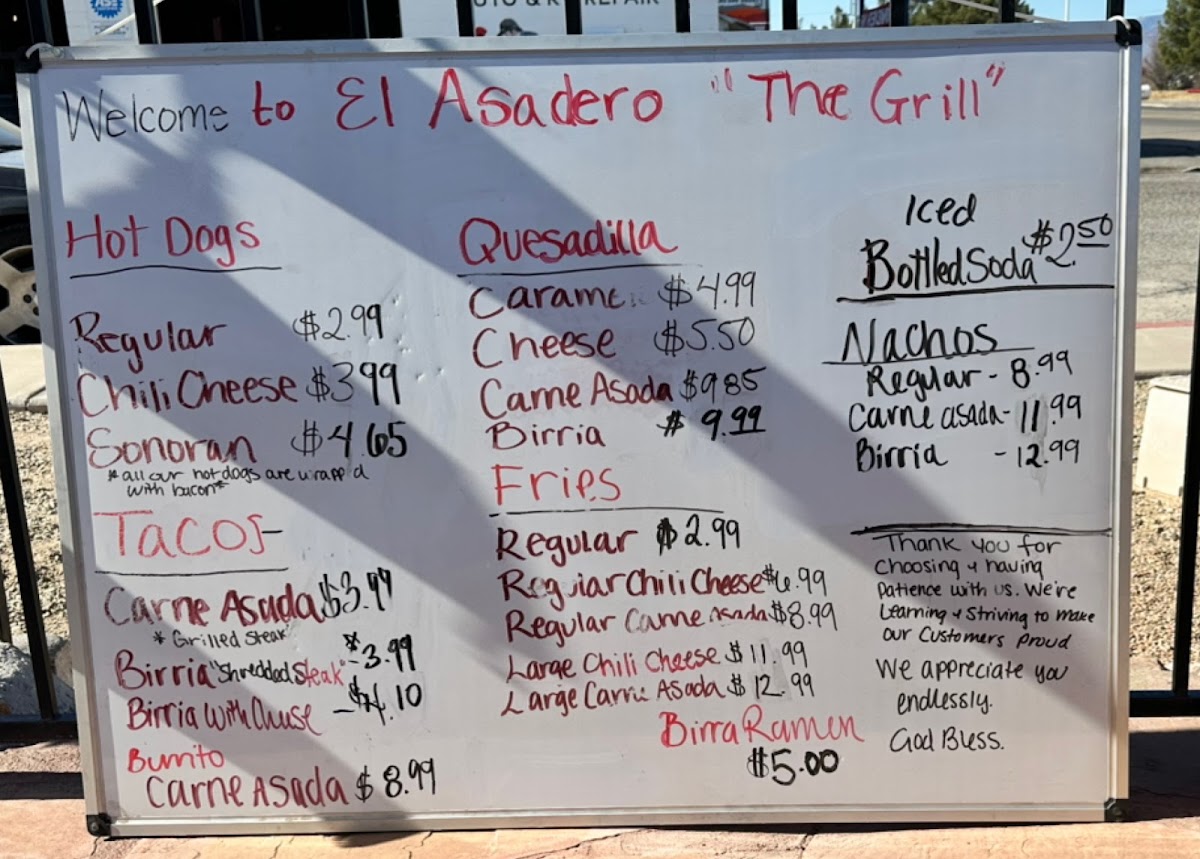 UTO & R REPAIR
Welcome to El Asadero "The Grill"
Hot Dogs
Regular $2.99
Chili Cheese $3.99
Sonoran $4.65
*all our hotdogs are wrapped
with bacon*
Tacos-
Carne Asada $3.99
* Grilled Steak
Birria "Shredded Steak" - $3.99
Birria with Chese - $4.10
Burrito
Carne Asada $8.99
Quesadilla
Carame $4.99
Cheese $5.50
Carne Asada $9.85
Birria $9.99
Fries
Regular $2.99
Regular Chili Cheese $6.99
Regular Carne Asada $8.99
Large Chili Cheese $11.99
Large Carne Asada $12.99
Birra Ramen
$5.00
Iced
Bottled Soda $2.50
Nachos
Regular - 8.99
Carne asada - 11.99
Birria - 12.99
Thank you for
Choosing & having
Patience with us. We're
Learning & Striving to make
our Customers proud
We appreciate you
endlessly.
God Bless.